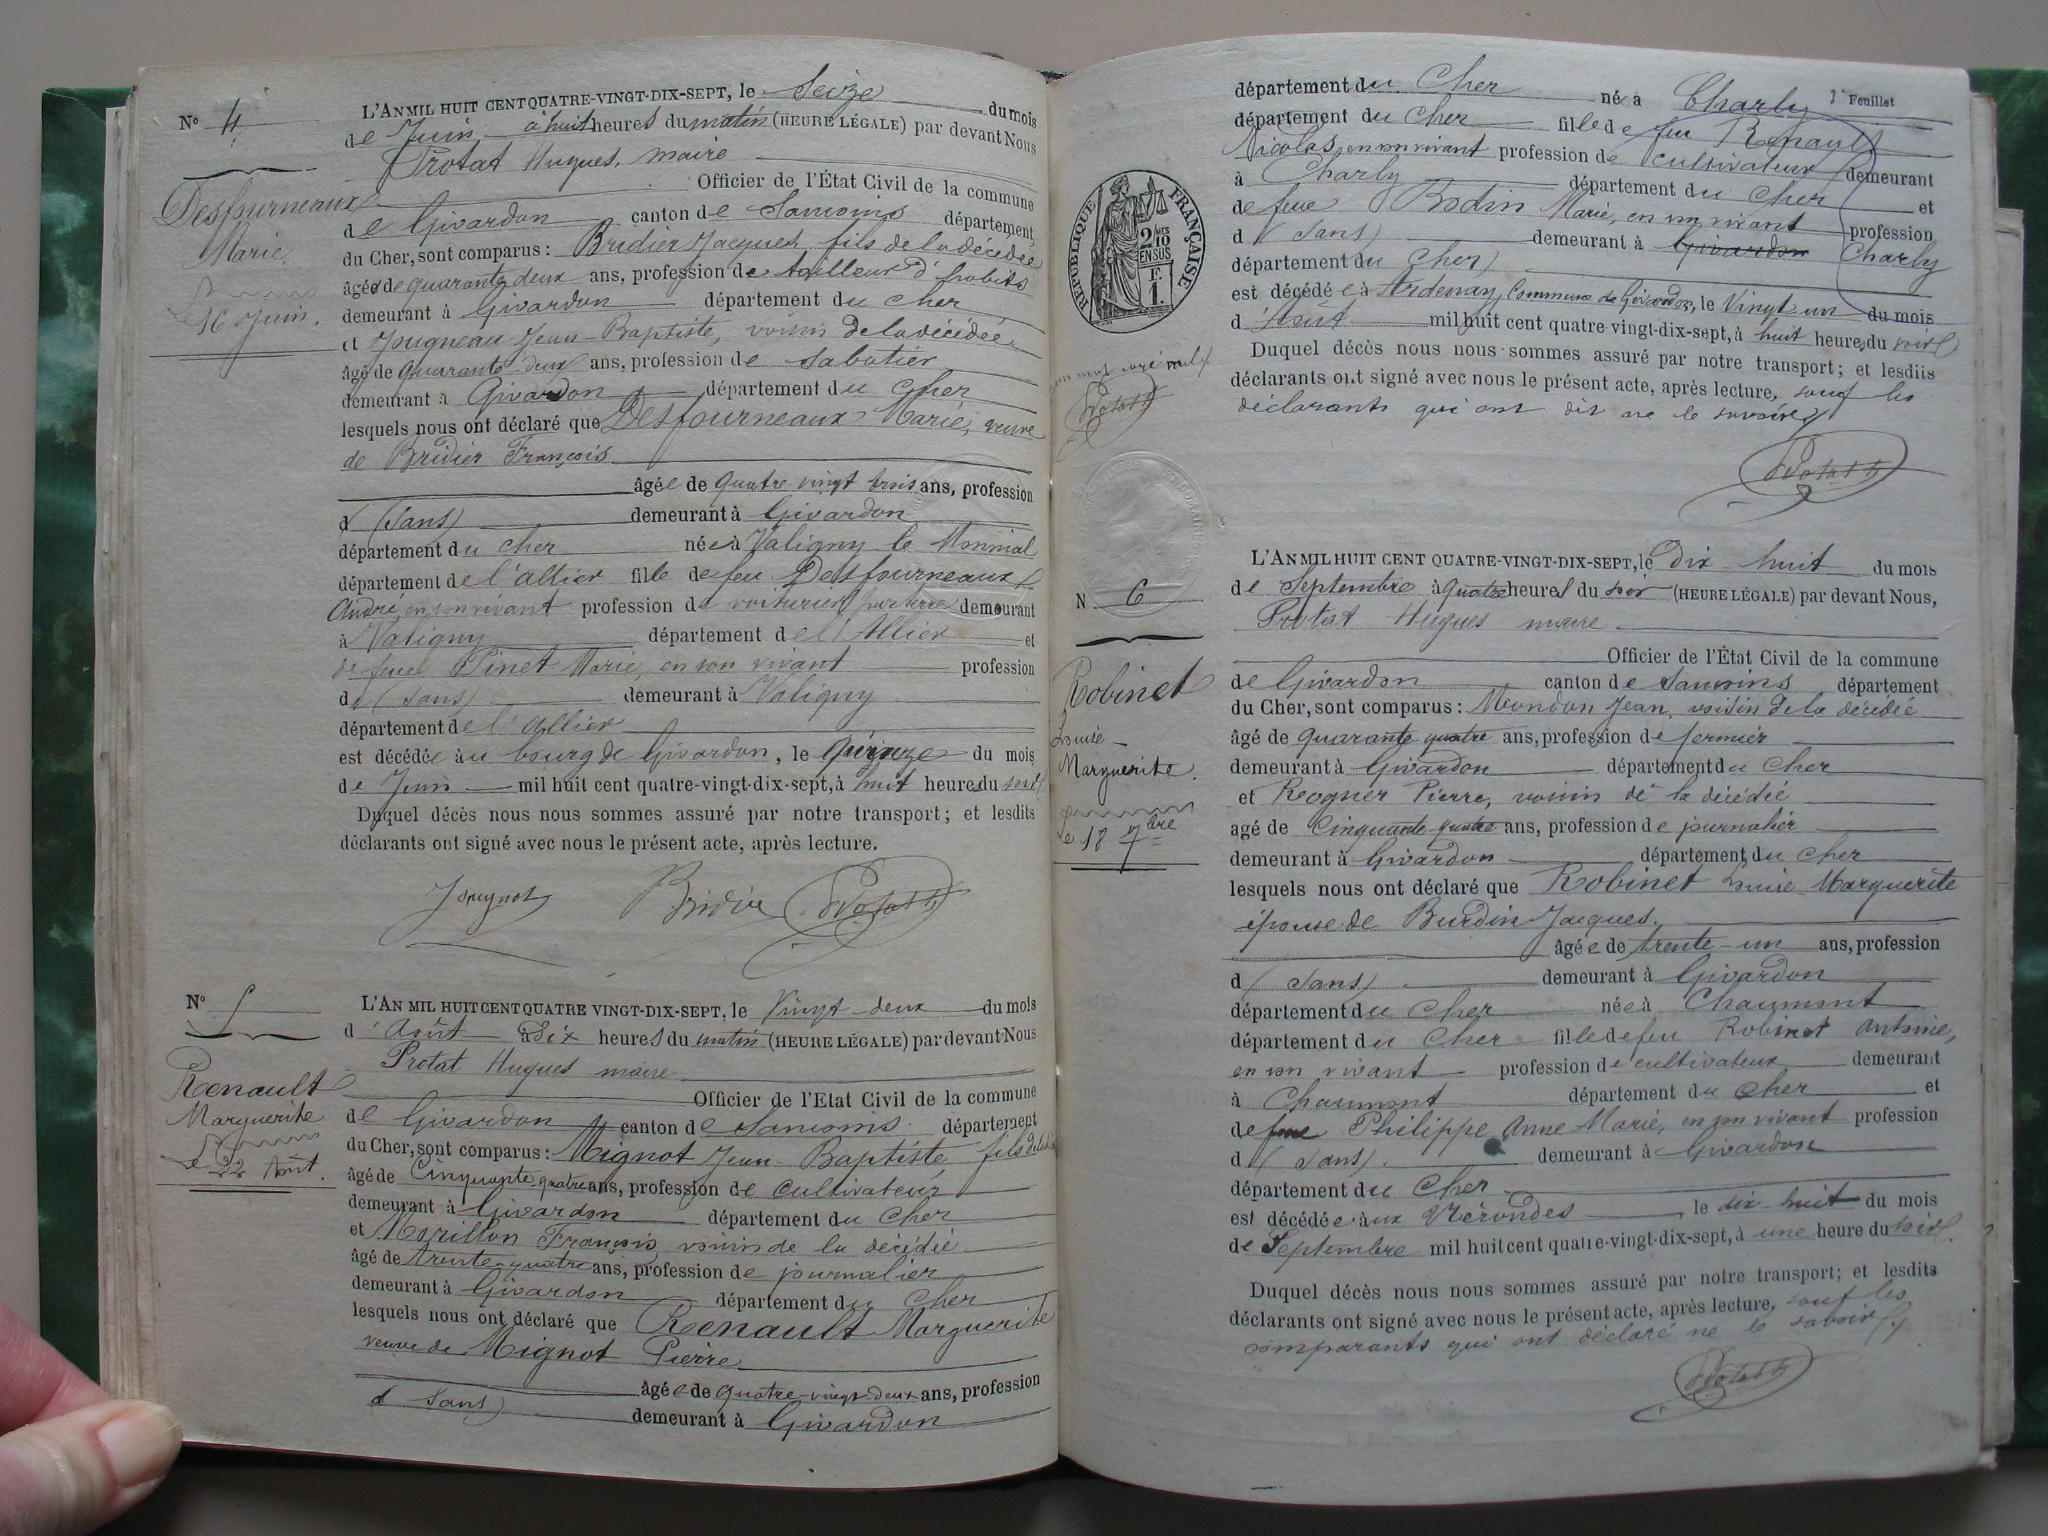 N° 4
Desfourneaux
Marie
16 Juin.
L'AN MIL HUIT CENT QUATRE-VINGT-DIX-SEPT, le Seize du mois
de Juin à huit heures du matin (HEURE LÉGALE) par devant Nous
Protat Hugues, maire
Officier de l'État Civil de la commune
de Givardon canton de Sancoins département,
du Cher, sont comparus : Bridier Jacques, fils de la décédée
âgé de quarante deux ans, profession de tailleur d'habits
demeurant à Givardon département du Cher
et Jougneau Jean-Baptiste, voisin de la décédée
âgé de quarante-deux ans, profession de sabotier
demeurant à Givardon département du Cher
lesquels nous ont déclaré que Desfourneaux Marie, veuve
de Bridier François
âgée de quatre-vingt trois ans, profession
d (sans) demeurant à Givardon
département du Cher née à Valigny le Monial
département de l'Allier fille de feu Desfourneaux
André, en son vivant profession de voiturier par terre demeurant
à Valigny département de l'Allier et
de feue Pinet Marie, en son vivant profession
d (sans) demeurant à Valigny
département de l'Allier
est décédée au bourg de Givardon, le quinze du mois
de Juin mil huit cent quatre-vingt-dix-sept, à huit heures du soir
Duquel décès nous nous sommes assuré par notre transport ; et lesdits
déclarants ont signé avec nous le présent acte, après lecture.
Bridier Protat H
N° 5
Renault
Marguerite
le 22 Août.
L'AN MIL HUIT CENT QUATRE VINGT-DIX-SEPT, le Vingt-deux du mois
d'Août à Dix heures du matin (HEURE LÉGALE) par devant Nous
Protat Hugues maire
Officier de l'Etat Civil de la commune
de Givardon canton de Sancoins. département
du Cher, sont comparus : Mignot Jean-Baptiste, fils de la
âgé de Cinquante-quatre ans, profession de cultivateur
demeurant à Givardon département du Cher
et Morillon François, voisin de la décédée
âgé de trente-quatre ans, profession de journalier
demeurant à Givardon département du Cher
lesquels nous ont déclaré que Renault Marguerite
veuve de Mignot Pierre
âgée de quatre-vingt-deux ans, profession
d sans) demeurant à Givardon
Feuillet
département du Cher né à Charly
département du Cher fille de feu Renault
Nicolas, en son vivant profession de cultivateur demeurant
à Charly département du Cher et
de feue Bodin Marie, en son vivant profession
d (sans) demeurant à Givardon Charly
département du Cher
est décédée à Ardenay, Commune de Givardon, le Vingt un du mois
d'Août mil huit cent quatre-vingt-dix-sept, à huit heures du soir
Duquel décès nous nous sommes assuré par notre transport ; et lesdits
déclarants ont signé avec nous le présent acte, après lecture, sauf les
déclarants qui ont dit ne le savoir
Protat H
RÉPUBLIQUE FRANÇAISE
2 MES
10
EN SUS
F.
1.
un mot rayé nul
Protat H
N 6
Robinet
Louise
Marguerite.
le 18 7bre
L'AN MIL HUIT CENT QUATRE-VINGT-DIX-SEPT, le dix huit du mois
de Septembre à quatre heures du soir (HEURE LÉGALE) par devant Nous,
Protat Hugues maire
Officier de l'État Civil de la commune
de Givardon canton de Sancoins département
du Cher, sont comparus : Mondon Jean, voisin de la décédée
âgé de quarante quatre ans, profession de fermier
demeurant à Givardon département du Cher
et Rognér Pierre, voisin de la décédée
agé de Cinquante quatre ans, profession de journalier
demeurant à Givardon département du Cher
lesquels nous ont déclaré que Robinet Louise Marguerite
épouse de Burdin Jacques.
âgée de trente-un ans, profession
d (sans) demeurant à Givardon
département du Cher née à Chaumont
département du Cher fille de feu Robinet Antoine,
en son vivant profession de cultivateur demeurant
à Chaumont département du Cher et
de feue Philippe Anne Marie, en son vivant profession
d (sans) demeurant à Givardon
département du Cher
est décédée aux Vérondes, le dix-huit du mois
de Septembre mil huit cent quatre-vingt-dix-sept, à une heure du soir.
Duquel décès nous nous sommes assuré par notre transport ; et lesdits
déclarants ont signé avec nous le présent acte, après lecture, sauf les
comparants qui ont déclaré ne le savoir
Protat H